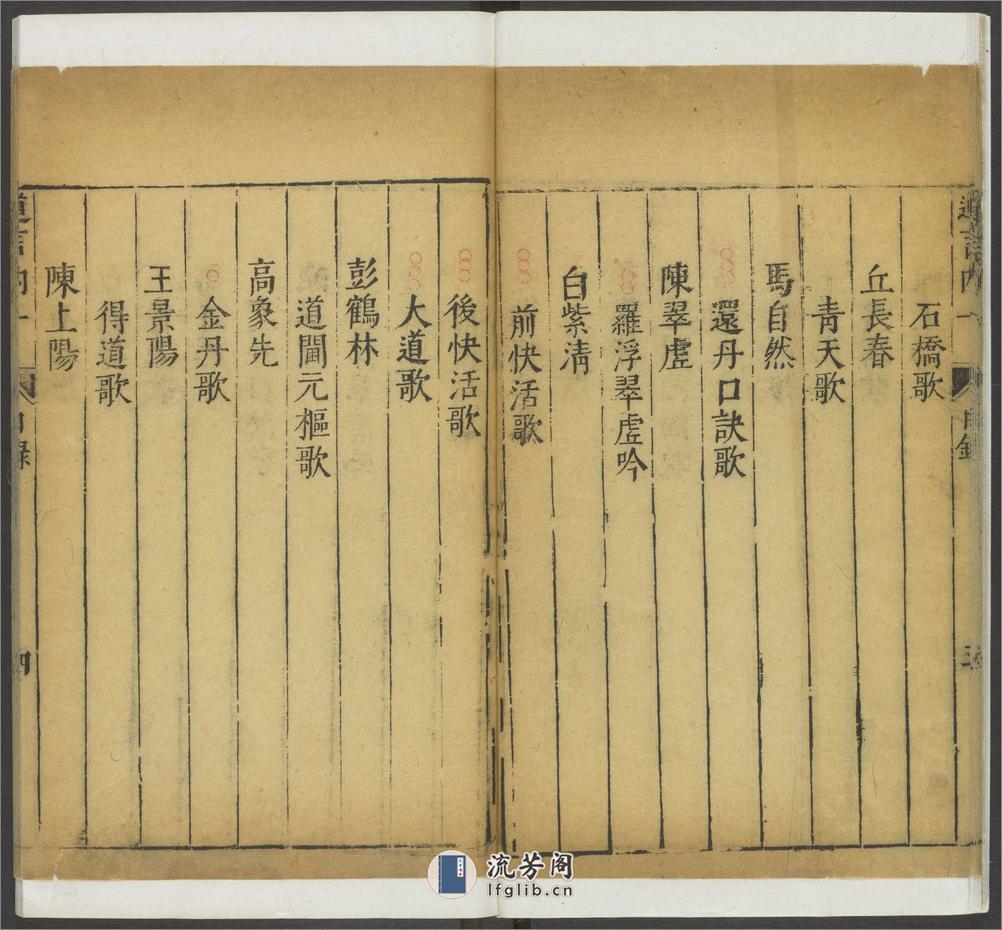 道言內一
目錄
三
石橋歌
丘長春
青天歌
馬自然
還丹口訣歌
陳翠虛
羅浮翠虛吟
白紫清
前快活歌
後快活歌
大道歌
彭鶴林
道閫元樞歌
高象先
金丹歌
王景陽
得道歌
陳上陽
道言內一
目錄
四
流芳阁
lfglib.cn